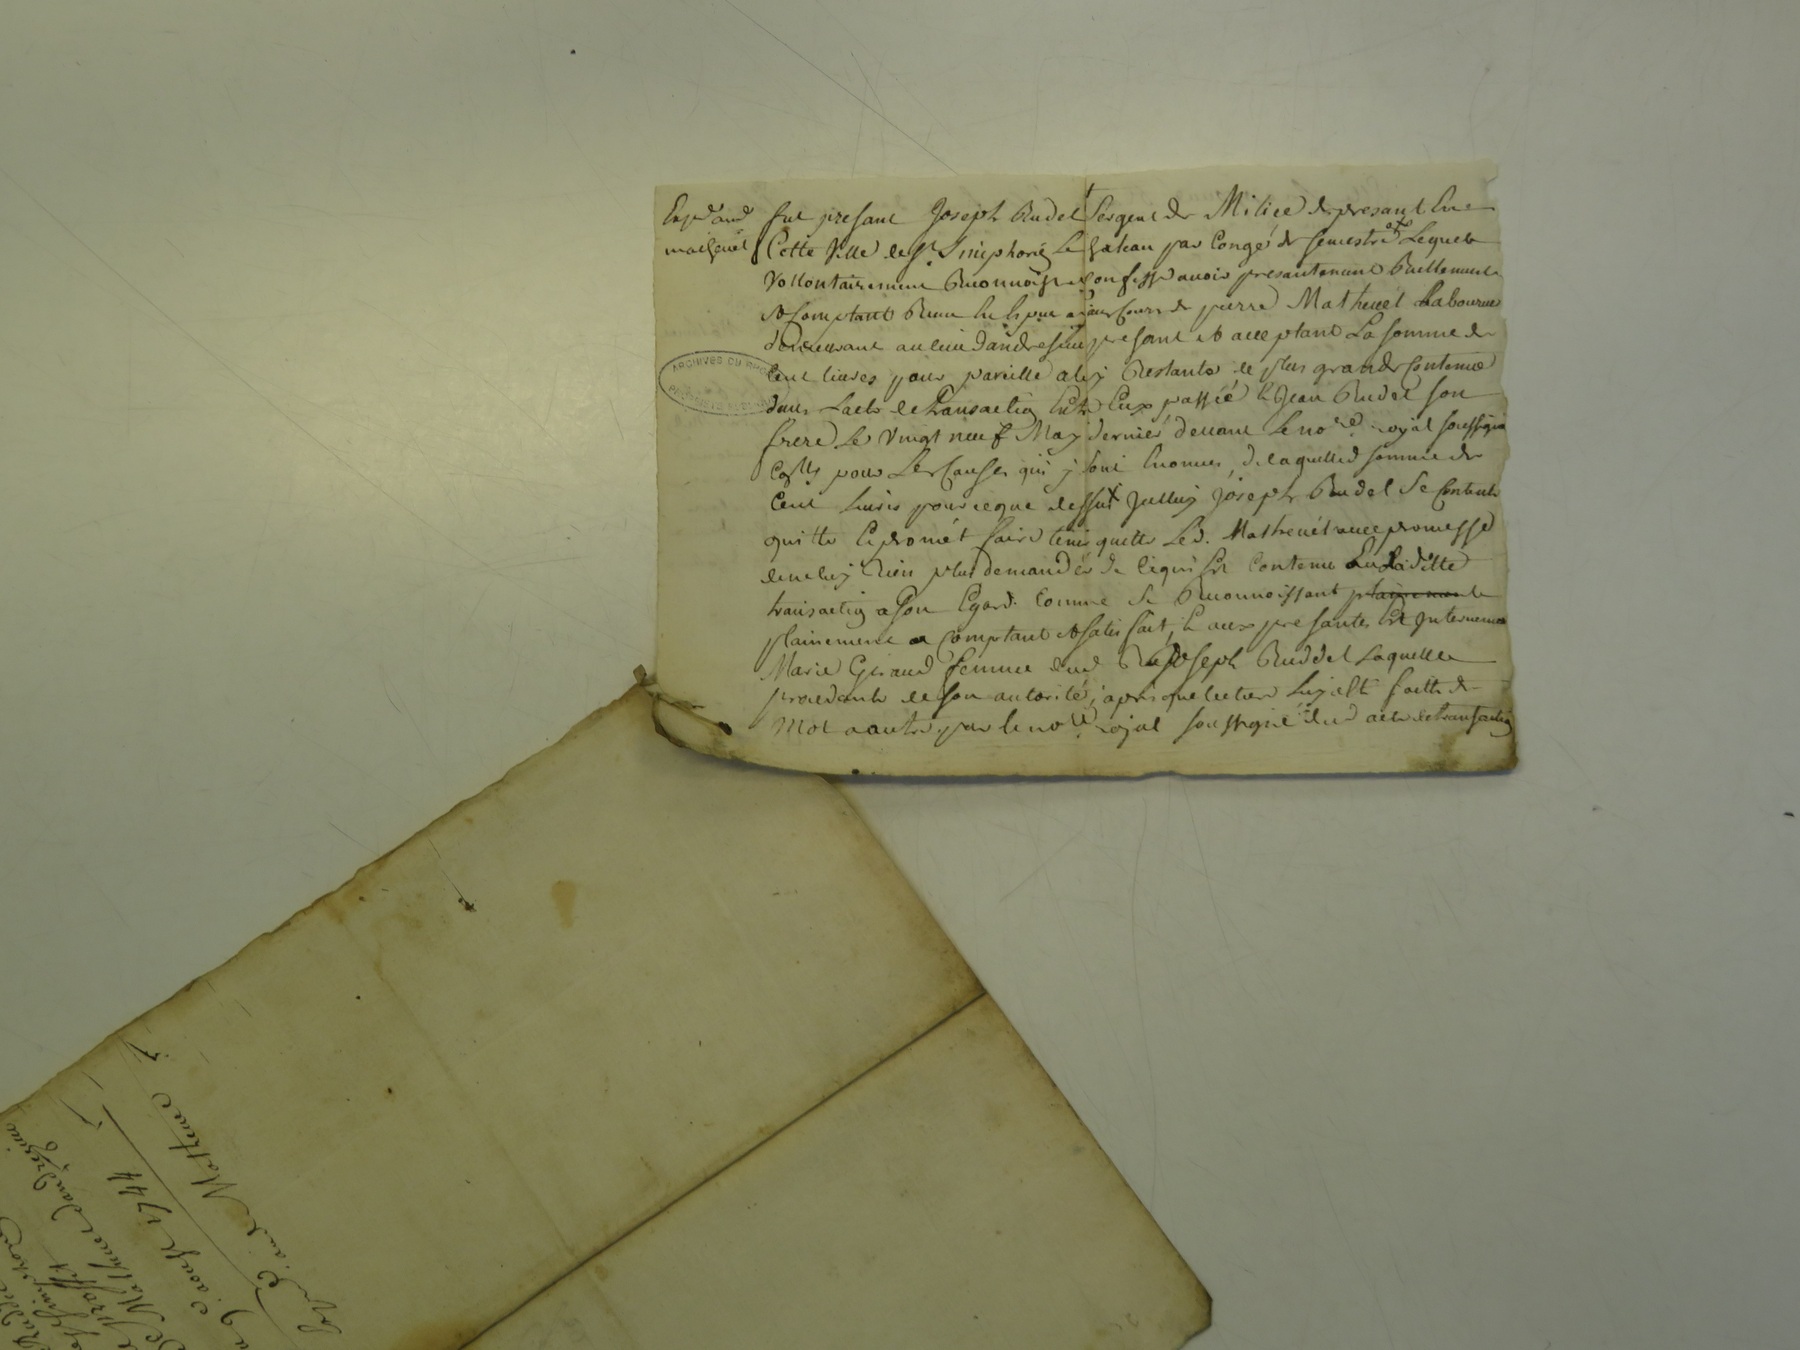 Exp.d aud
mathevét
fut presant Joseph Rudel Sergent de Milice de presant En
Cette Ville de St. Simphorié Le Chateau par Congé de semestre Lequel
Vollontairement Reconnoist et Confesse avoir presantement Reellement
et Comptant Receu de pierre Mathevét Laboureur
demeurant au lieu dandresieu presant et acceptant La somme de
Cent livres pour pareille a luy Restante de plus grande Contenue
dans Lacte de transactiõ Entre Eux passée Et Jean Rudel son
frere Le Vingt neuf May dernier devant Le nore. royal soussigné
pour Les Causes qui y sont Enoncees, de laquelle somme de
Cent livres pour ce que dessus Jcelluy Joseph Rudel Se Contente
quitte Et promét faire tenir quitte Led. Mathevét avec promesse
de ne luy Rien plus demander de Ce qui Est Contenu En Laditte
transactiõ a son Egard. Comme se Reconnoissant plainement
plainement Comptant et satisfait, Et aux presantes Est Intervenue
Marie Giraud femme dud Joseph Ruddel Laquelle
procedante de son autorité, apres que lecture Luy a Esté faitte de
Mot a autre par le nore. royal soussigné dud acte de transactiõ
ARCHIVES DU
aoust 1744
Mathevet dandresieu
Exp.d aud Mathevet